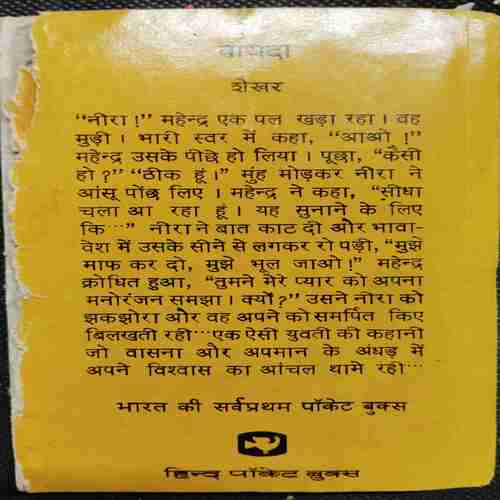 वायदा
शेखर
"नीरा!" महेन्द्र एक पल खड़ा रहा। वह
मुड़ी। भारी स्वर में कहा, "आओ!"
महेन्द्र उसके पीछे हो लिया। पूछा, "कैसी
हो?" "ठीक हूं।" मुंह मोड़कर नीरा ने
आंसू पोंछ लिए। महेन्द्र ने कहा, "सीधा
चला आ रहा हूं। यह सुनाने के लिए
कि···" नीरा ने बात काट दी और भावा-
वेश में उसके सीने से लगकर रो पड़ी, "मुझे
माफ कर दो, मुझे भूल जाओ!" महेन्द्र
क्रोधित हुआ, "तुमने मेरे प्यार को अपना
मनोरंजन समझा। क्यों?" उसने नीरा को
झकझोरा और वह अपने को समर्पित किए
बिलखती रही···एक ऐसी युवती की कहानी
जो वासना और अपमान के अंधड़ में
अपने विश्वास का आंचल थामे रही···
भारत की सर्वप्रथम पॉकेट बुक्स
हिन्द पॉकेट बुक्स